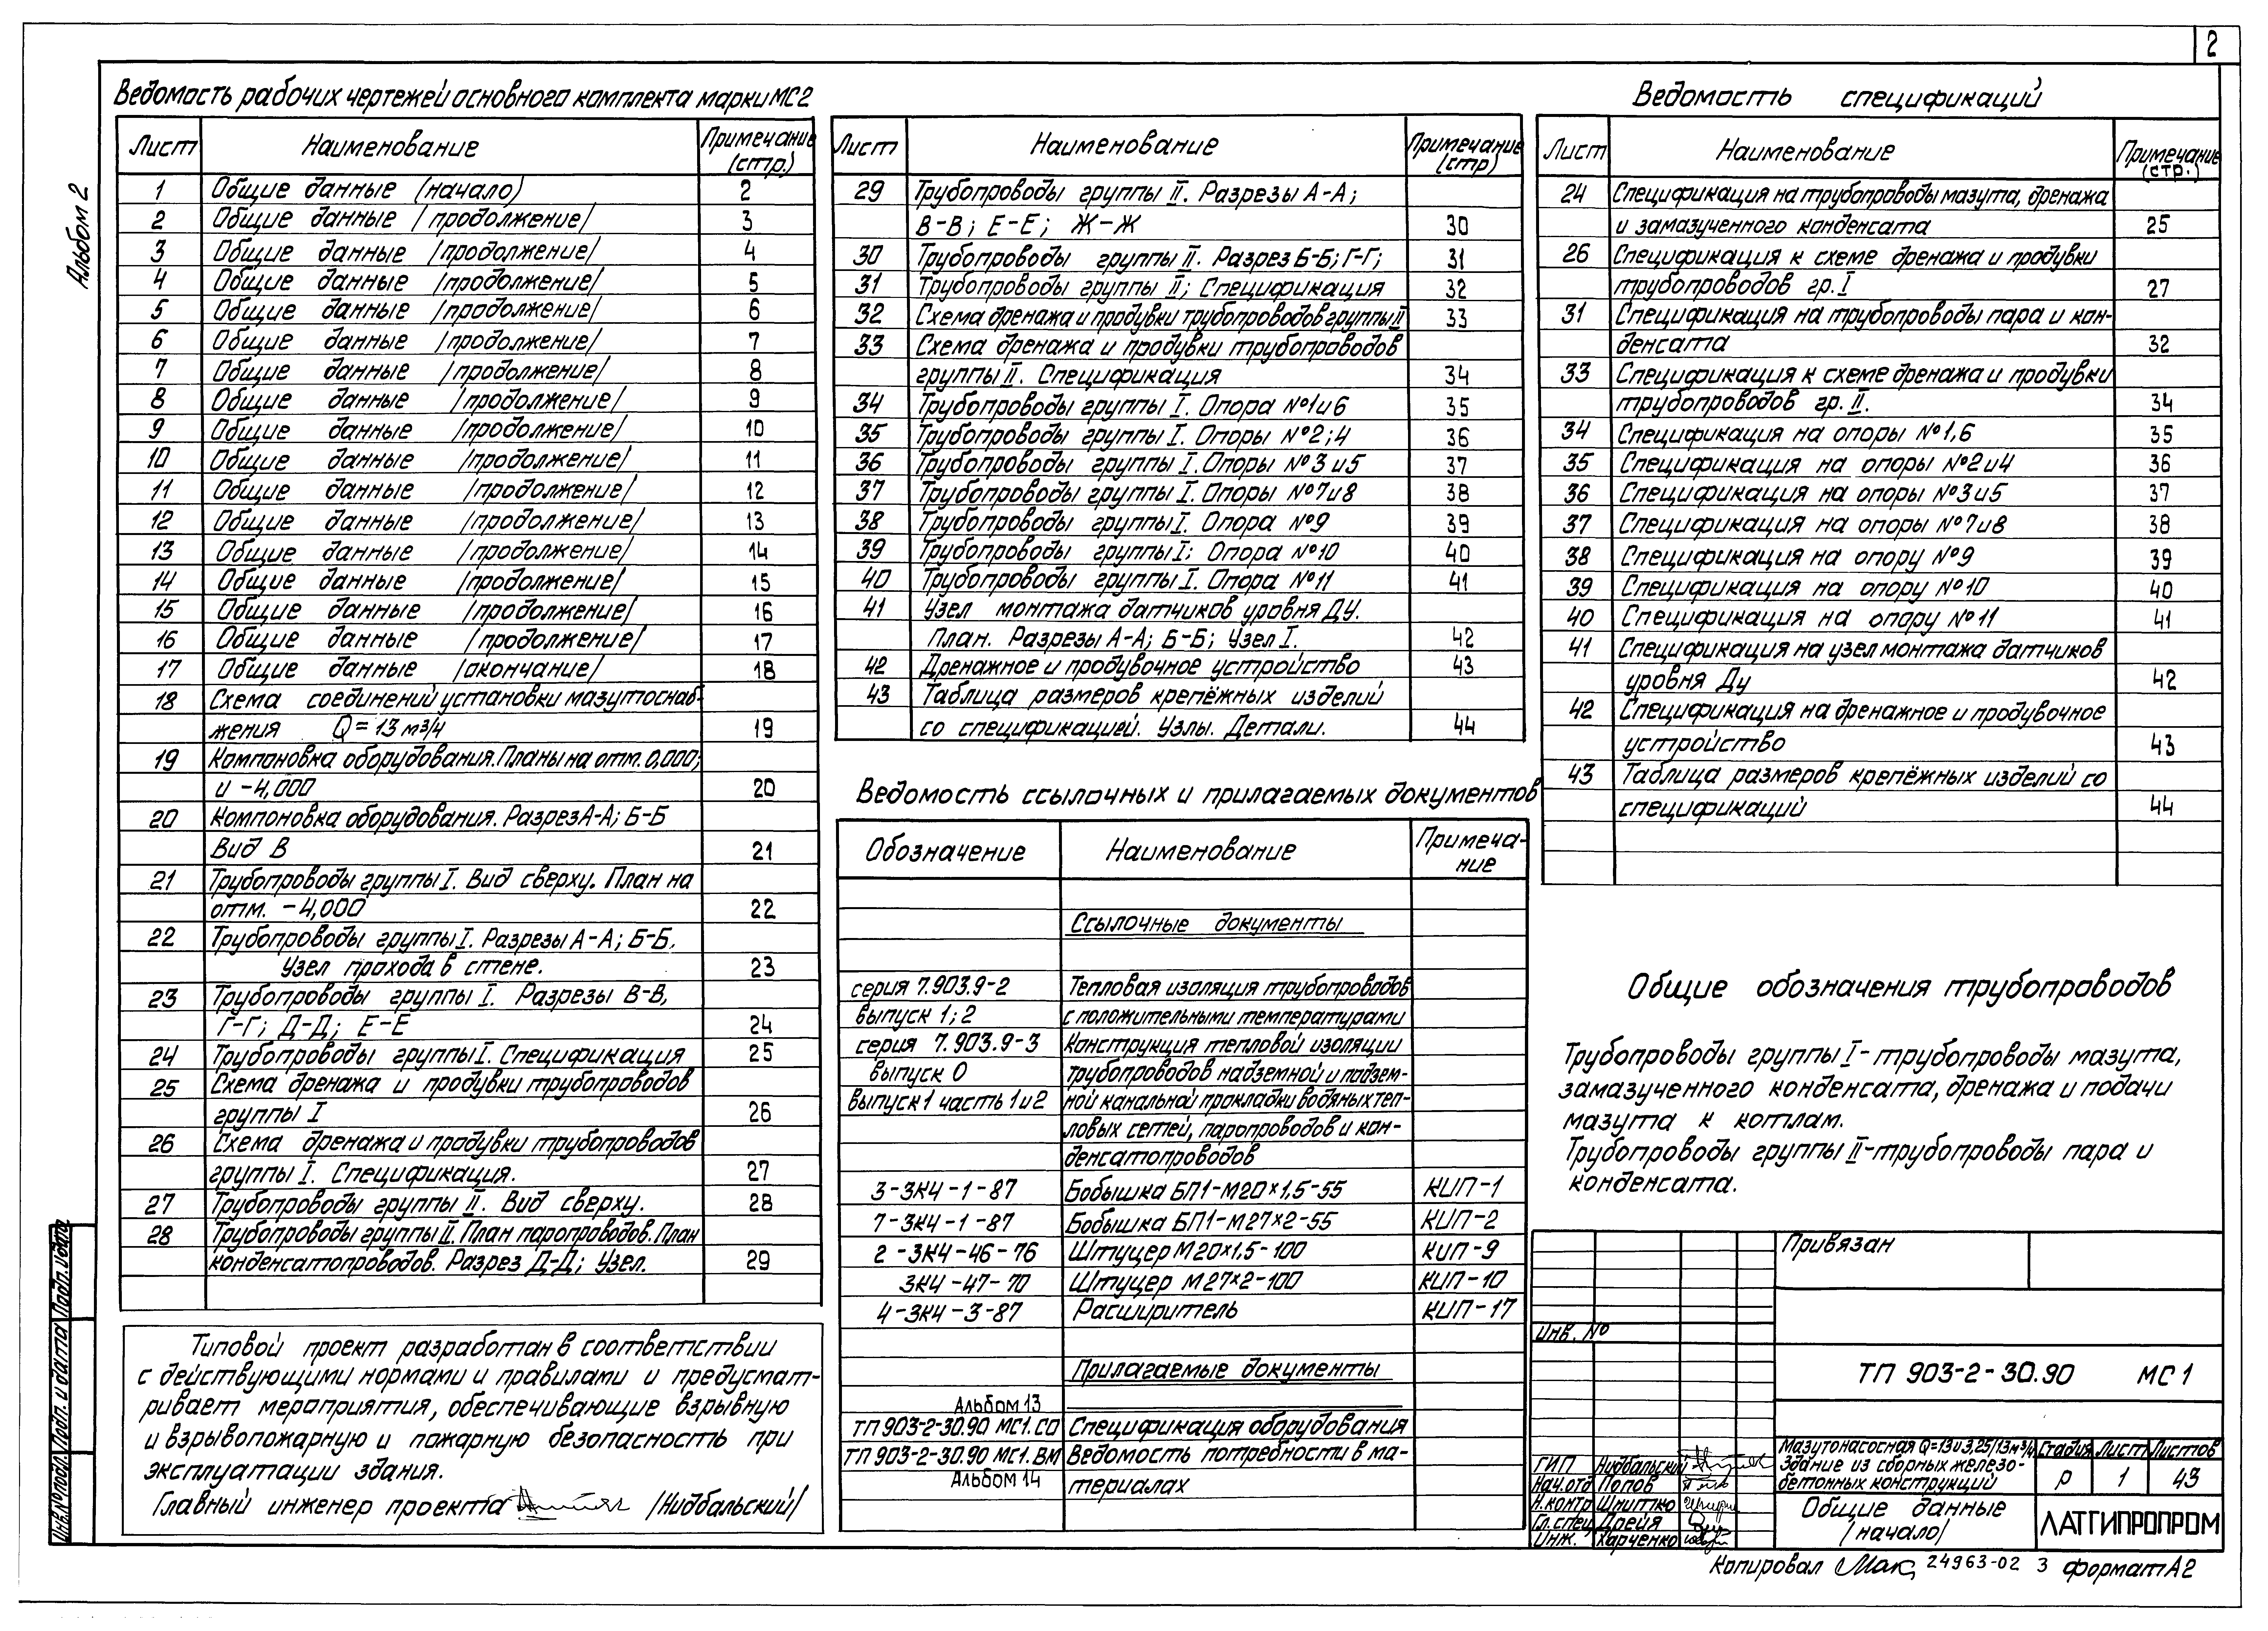 2
Альбом 2
Ведомость рабочих чертежей основного комплекта марки МС2
Лист Наименование Примечание (стр.)
1 Общие данные (начало) 2
2 Общие данные /продолжение/ 3
3 Общие данные /продолжение/ 4
4 Общие данные /продолжение/ 5
5 Общие данные /продолжение/ 6
6 Общие данные /продолжение/ 7
7 Общие данные /продолжение/ 8
8 Общие данные /продолжение/ 9
9 Общие данные /продолжение/ 10
10 Общие данные /продолжение/ 11
11 Общие данные /продолжение/ 12
12 Общие данные /продолжение/ 13
13 Общие данные /продолжение/ 14
14 Общие данные /продолжение/ 15
15 Общие данные /продолжение/ 16
16 Общие данные /продолжение/ 17
17 Общие данные /окончание/ 18
18 Схема соединений установки мазутоснаб-
жения Q = 13 м3/ч 19
19 Компоновка оборудования. Планы на отм. 0,000;
и -4,000 20
20 Компоновка оборудования. Разрез А-А; Б-Б
Вид В 21
21 Трубопроводы группы I. Вид сверху. План на
отм. -4,000 22
22 Трубопроводы группы I. Разрезы А-А; Б-Б.
Узел прохода в стене. 23
23 Трубопроводы группы I. Разрезы В-В,
Г-Г; Д-Д; Е-Е 24
24 Трубопроводы группы I. Спецификация 25
25 Схема дренажа и продувки трубопроводов
группы I 26
26 Схема дренажа и продувки трубопроводов
группы I. Спецификация. 27
27 Трубопроводы группы II. Вид сверху. 28
28 Трубопроводы группы II. План паропроводов. План
конденсатопроводов. Разрез Д-Д; Узел. 29
Типовой проект разработан в соответствии
с действующими нормами и правилами и предусмат-
ривает мероприятия, обеспечивающие взрывную
и взрывопожарную и пожарную безопасность при
эксплуатации здания.
Главный инженер проекта /Нидбальский/
Лист Наименование Примечание (стр)
29 Трубопроводы группы II. Разрезы А-А;
В-В; Е-Е; Ж-Ж 30
30 Трубопроводы группы II. Разрез Б-Б; Г-Г; 31
31 Трубопроводы группы II; Спецификация 32
32 Схема дренажа и продувки трубопроводов группы II 33
33 Схема дренажа и продувки трубопроводов
группы II. Спецификация 34
34 Трубопроводы группы I. Опора №1 и 6 35
35 Трубопроводы группы I. Опоры №2; 4 36
36 Трубопроводы группы I. Опоры №3 и 5 37
37 Трубопроводы группы I. Опоры №7 и 8 38
38 Трубопроводы группы I. Опора №9 39
39 Трубопроводы группы I: Опора №10 40
40 Трубопроводы группы I. Опора №11 41
41 Узел монтажа датчиков уровня ДУ.
План. Разрезы А-А; Б-Б; Узел I. 42
42 Дренажное и продувочное устройство 43
43 Таблица размеров крепёжных изделий
со спецификацией. Узлы. Детали. 44
Ведомость ссылочных и прилагаемых документов
Обозначение Наименование Примеча-
ние
Ссылочные документы
серия 7.903.9-2 Тепловая изоляция трубопроводов
выпуск 1; 2 с положительными температурами
серия 7.903.9-3 Конструкция тепловой изоляции
выпуск 0 трубопроводов надземной и подзем-
выпуск 1 часть 1 и 2 ной канальной прокладки водяных теп-
ловых сетей, паропроводов и кон-
денсатопроводов
3-ЗК4-1-87 Бобышка БП1-М20×1,5-55 КИП-1
7-ЗК4-1-87 Бобышка БП1-М27×2-55 КИП-2
2-ЗК4-46-76 Штуцер М20×1,5-100 КИП-9
ЗК4-47-70 Штуцер М27×2-100 КИП-10
4-ЗК4-3-87 Расширитель КИП-17
Прилагаемые документы
Альбом 13
ТП 903-2-30.90 МС1.СО Спецификация оборудования
ТП 903-2-30.90 МС1.ВМ Ведомость потребности в ма-
Альбом 14 териалах
Ведомость спецификаций
Лист Наименование Примечание (стр.)
24 Спецификация на трубопроводы мазута, дренажа
и замазученного конденсата 25
26 Спецификация к схеме дренажа и продувки
трубопроводов гр. I 27
31 Спецификация на трубопроводы пара и кон-
денсата 32
33 Спецификация к схеме дренажа и продувки
трубопроводов гр. II. 34
34 Спецификация на опоры №1,6 35
35 Спецификация на опоры №2 и 4 36
36 Спецификация на опоры №3 и 5 37
37 Спецификация на опоры №7 и 8 38
38 Спецификация на опору №9 39
39 Спецификация на опору №10 40
40 Спецификация на опору №11 41
41 Спецификация на узел монтажа датчиков
уровня Ду 42
42 Спецификация на дренажное и продувочное
устройство 43
43 Таблица размеров крепёжных изделий со
спецификаций 44
Общие обозначения трубопроводов
Трубопроводы группы I-трубопроводы мазута,
замазученного конденсата, дренажа и подачи
мазута к котлам.
Трубопроводы группы II-трубопроводы пара и
конденсата.
Привязан
Инв. №
ТП 903-2-30.90 МС1
Мазутонасосная Q=13 и 3,25/13 м3/ч
Здание из сборных железо-
бетонных конструкций
Стадия Лист Листов
Р 1 43
ГИП Нидбальский
Нач.отд Попов
Н.контр Шнитко
Гл.спец Дрейя
Инж. Харченко
Общие данные
/начало/
ЛАТГИПРОПРОМ
Инв.№ подл. Подп. и дата Подп. и дата
Копировал 24963-02 3 Формат А2